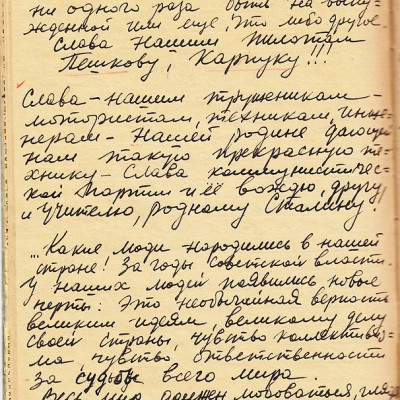 ни одного раза были на выну-
жденной или еще, это либо другое.
Слава нашим пилотам
Пешкову, Карпуку!!!
Слава – нашим труженикам –
мотористам, техникам, инже-
нерам – нашей родине давшей
нам такую прекрасную те-
хнику – Слава коммунистичес-
кой партии и её вождю, другу
и учителю, родному Сталину!
"...Какие люди народились в нашей
стране! За годы советской власти
у наших людей появились новые
черты: Это необычайная верность
великим идеям, великому делу
своей страны, чувство коллективиз-
ма, чувство ответственности
за судьбы всего мира.
Весь мир должен любоваться, гля-